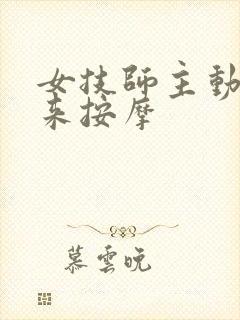 女技師主動
来按摩
慕雲晚